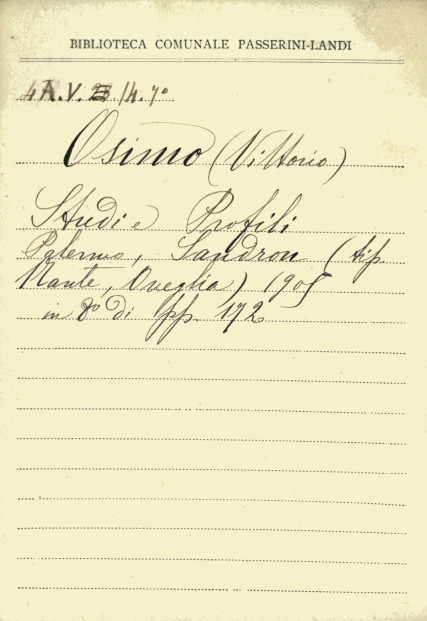 BIBLIOTECA COMUNALE PASSERINI-LANDI
4A.V. 14. 7º
Osimo (Vittorio)
Studi e Profili
Palermo, Sandron (tip.
Nante, Oneglia) 1905
in 8º di pp. 172